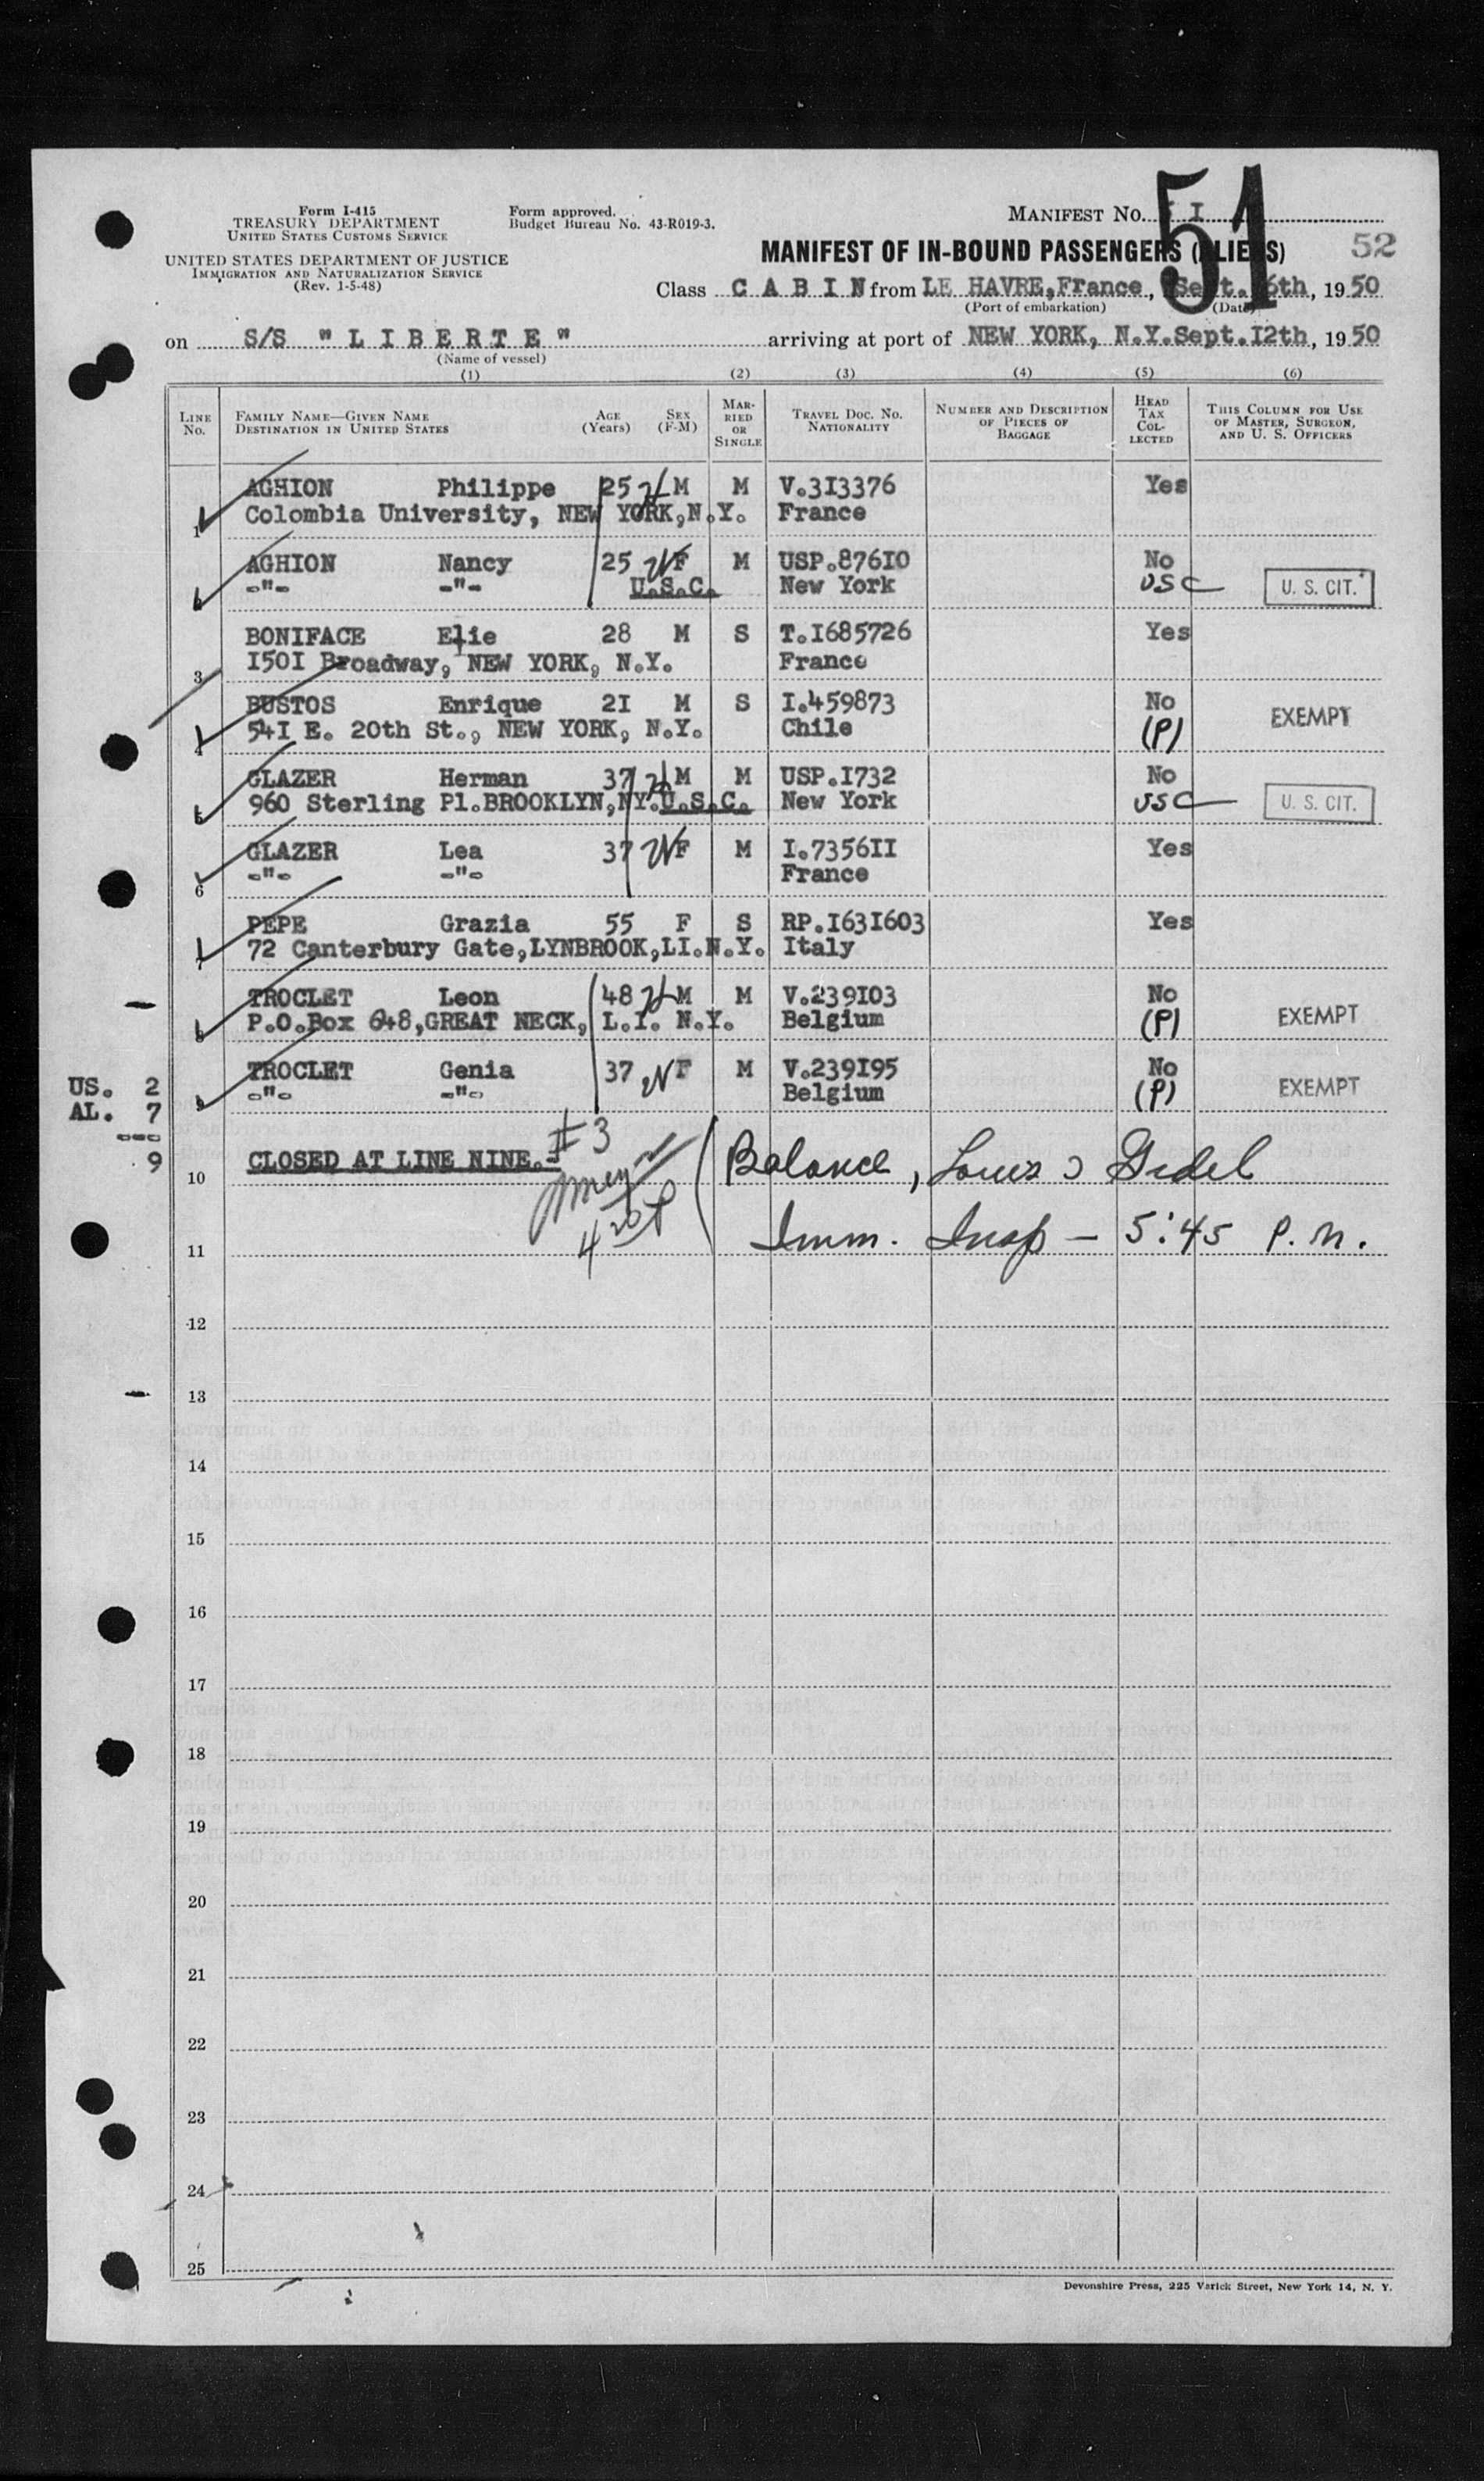 Form I-415
TREASURY DEPARTMENT
UNITED STATES CUSTOMS SERVICE
UNITED STATES DEPARTMENT OF JUSTICE
IMMIGRATION AND NATURALIZATION SERVICE
(Rev. 1-5-48)
Form approved.
Budget Bureau No. 43-R019-3.
MANIFEST NO. I
51
MANIFEST OF IN-BOUND PASSENGERS (ALIENS)
52
Class CABIN from LE HAVRE, France, Sept. 6th, 1950
(Port of embarkation) (Date)
on S/S "LIBERTE" arriving at port of NEW YORK, N.Y. Sept. 12th, 1950
(Name of vessel)
(1) (2) (3) (4) (5) (6)
LINE No. FAMILY NAME—GIVEN NAME DESTINATION IN UNITED STATES AGE (Years) SEX (F-M) MARRIED OR SINGLE TRAVEL DOC. NO. NATIONALITY NUMBER AND DESCRIPTION OF PIECES OF BAGGAGE HEAD TAX COLLECTED THIS COLUMN FOR USE OF MASTER, SURGEON, AND U. S. OFFICERS
1 AGHION Philippe 25 H M M V.3I3376 Yes
Colombia University, NEW YORK, N.Y. France
AGHION Nancy 25 W F M USP.876I0 No
-"- -"- U.S.C. New York USC U. S. CIT.
3 BONIFACE Elie 28 M S T.I685726 Yes
I50I Broadway, NEW YORK, N.Y. France
4 BUSTOS Enrique 2I M S I.459873 No EXEMPT
54I E. 20th St., NEW YORK, N.Y. Chile (P)
5 GLAZER Herman 37 H M M USP.I732 No
960 Sterling Pl.BROOKLYN,NY. U.S.C. New York USC U. S. CIT.
6 GLAZER Lea 37 W F M I.7356II Yes
-"- -"- France
7 PEPE Grazia 55 F S RP.I63I603 Yes
72 Canterbury Gate,LYNBROOK,LI.N.Y. Italy
8 TROCLET Leon 48 H M M V.239I03 No EXEMPT
P.O.Box 648,GREAT NECK, L.I. N.Y. Belgium (P)
9 TROCLET Genia 37 W F M V.239I95 No EXEMPT
-"- -"- Belgium (P)
US. 2
AL. 7
---
9
10 CLOSED AT LINE NINE.- #3
Balance, Louis J Gidel
11 Imm. Insp — 5:45 P.M.
12
13
14
15
16
17
18
19
20
21
22
23
24
25
Devonshire Press, 225 Varick Street, New York 14, N. Y.